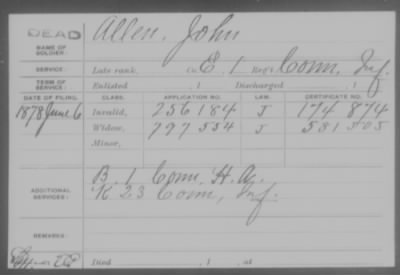 DEAD
NAME OF SOLDIER: Allen, John
SERVICE: Late rank, Co. E. 1 Reg't Conn. Inf.
TERM OF SERVICE: Enlisted , 1 Discharged , 1
DATE OF FILING. CLASS. APPLICATION NO. LAW. CERTIFICATE NO.
1878 June 6 Invalid, 256 184 J 174 874
Widow, 797 554 J 581 505
Minor,
ADDITIONAL SERVICES: B. 1 Conn. H.A.
K 23 Conn, Inf.
REMARKS:
Died , 1 , at